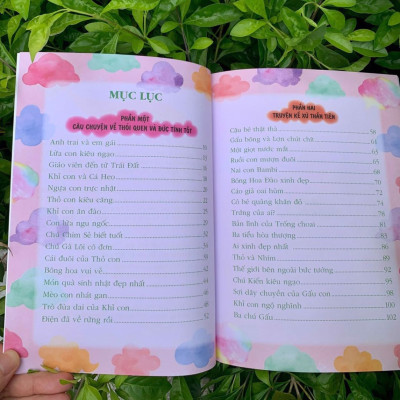 MỤC LỤC
PHẦN MỘT
CÂU CHUYỆN VỀ THÓI QUEN VÀ ĐỨC TÍNH TỐT
Anh trai và em gái
Lừa con kiêu ngạo
Giáo viên đến từ Trái Đất
Khỉ con và Cá Heo
Ngựa con trực nhật
Thỏ con kiêu căng
Khỉ con ăn đào
Con lừa ngu ngốc
Chú Chim Sẻ biết tuốt
Chú Gà Lôi cô đơn
Cái đuôi của Thỏ con
Bông hoa vui vẻ
Món quà sinh nhật đẹp nhất
Mèo con nhát gan
Trò đùa dai của Khỉ con
Điện đã về rừng rồi 52
PHẦN HAI
TRUYỆN KỂ XỨ THẦN TIÊN
Cậu bé thật thà 56
Gấu bông và Lợn chút chít
Một giọt nước mắt
Ruồi con mượn đuôi
Nai con Bambi
Bông Hoa Đào xinh đẹp 70
Cáo già sui hóm
Cô bé quàng khăn đỏ
Trứng của ai?
Bản lĩnh của Trống choai 81
Ba tiểu hòa thượng 83
Ai xinh đẹp nhất
Thỏ và Nhím
Thế giới bên ngoài bức tường 92
Chú Kiến kiêu ngạo 95
Sợi dây chuyền của Gấu con 98
Khỉ con ngộ nghĩnh
Ba chú Gấu 102